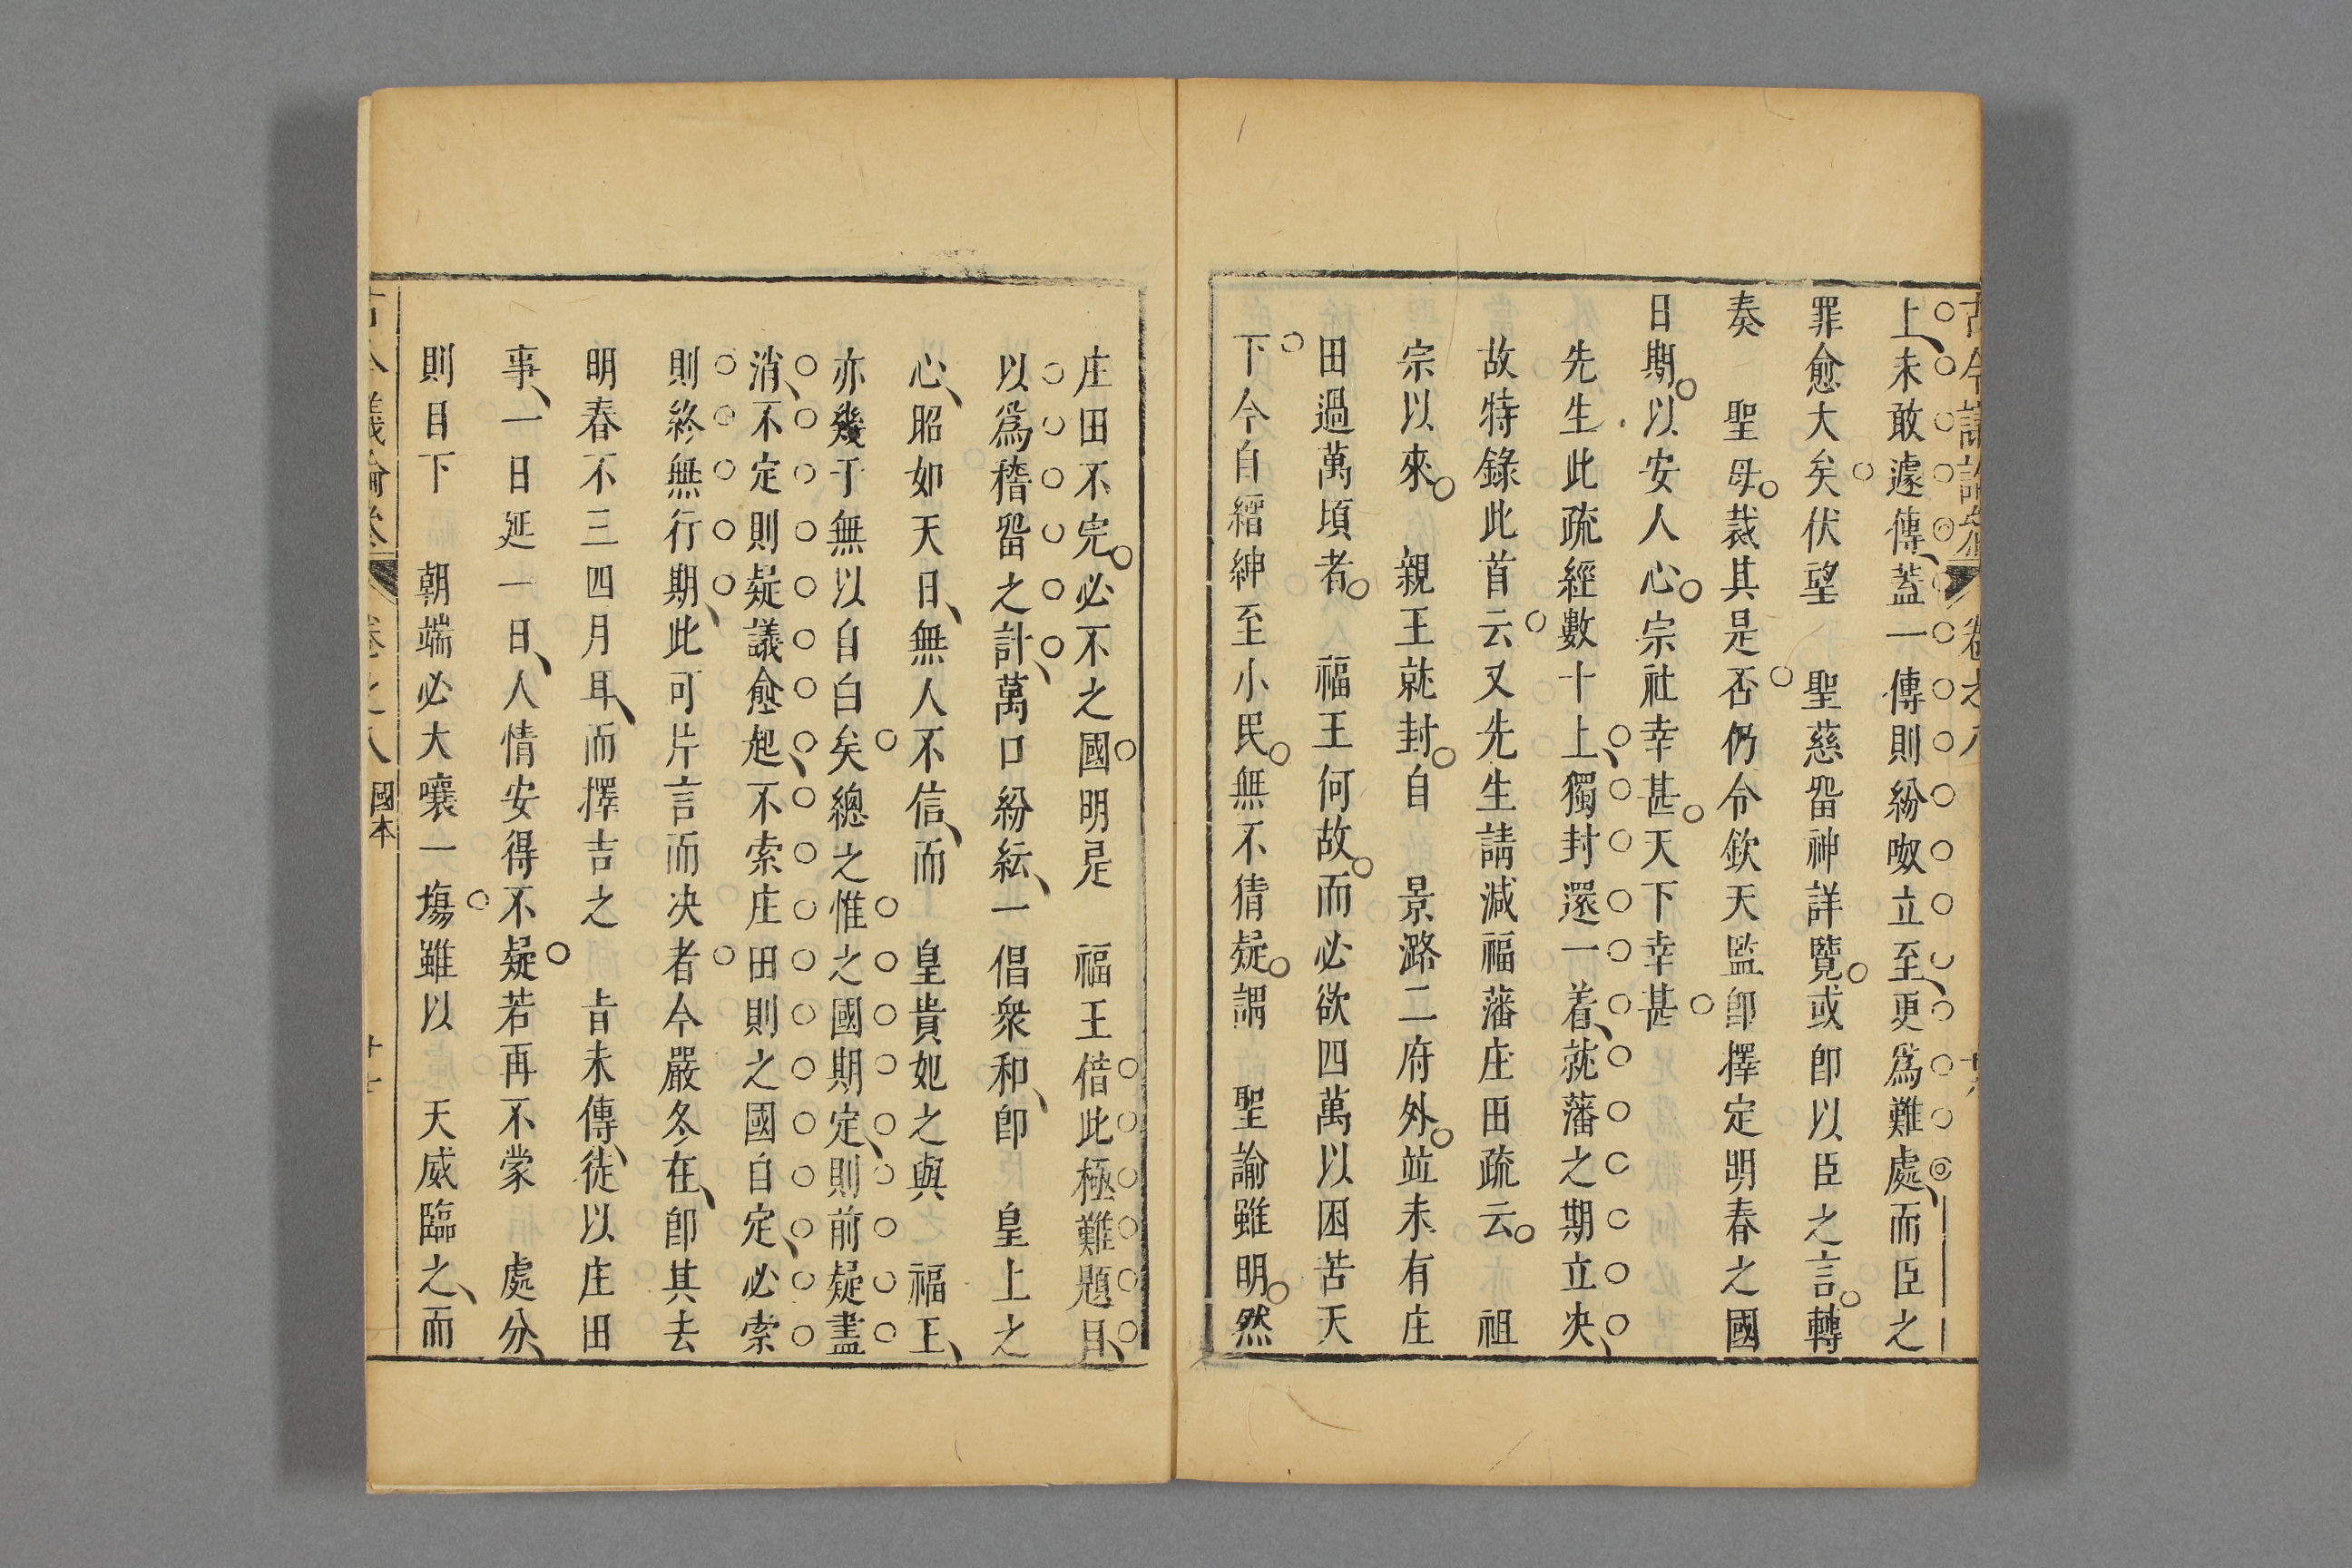 古今議論參 卷之八
上未敢遽傳蓋一傳則紛呶立至更爲難處而臣之
罪愈大矣伏望 聖慈畱神詳覽或卽以臣之言轉
奏 聖母裁其是否仍令欽天監卽擇定明春之國
日期以安人心宗社幸甚天下幸甚
先生此疏經數十上獨封還一着就藩之期立決
故特錄此首云又先生請減福藩庄田疏云 祖
宗以來 親王就封自 景潞二府外並未有庄
田過萬頃者 福王何故而必欲四萬以困苦天
下今自縉紳至小民無不猜疑謂 聖諭雖明然
庄田不完必不之國明是 福王借此極難題目
以爲稽畱之計萬口紛紜一倡衆和卽 皇上之
心昭如天日無人不信而 皇貴妃之與 福王
亦幾于無以自白矣總之惟之國期定則前疑盡
消不定則疑議愈起不索庄田則之國自定必索
則終無行期此可片言而決者今嚴冬在卽其去
明春不三四月耳而擇吉之 旨未傳徒以庄田
事一日延一日人情安得不疑若再不蒙 處分
則目下 朝端必大嚷一塲雖以 天威臨之而
古今議論參 卷之八 國本